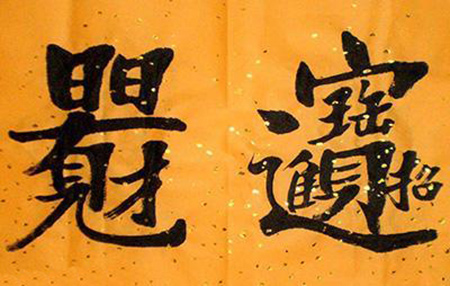 招財進寶
日日有見財